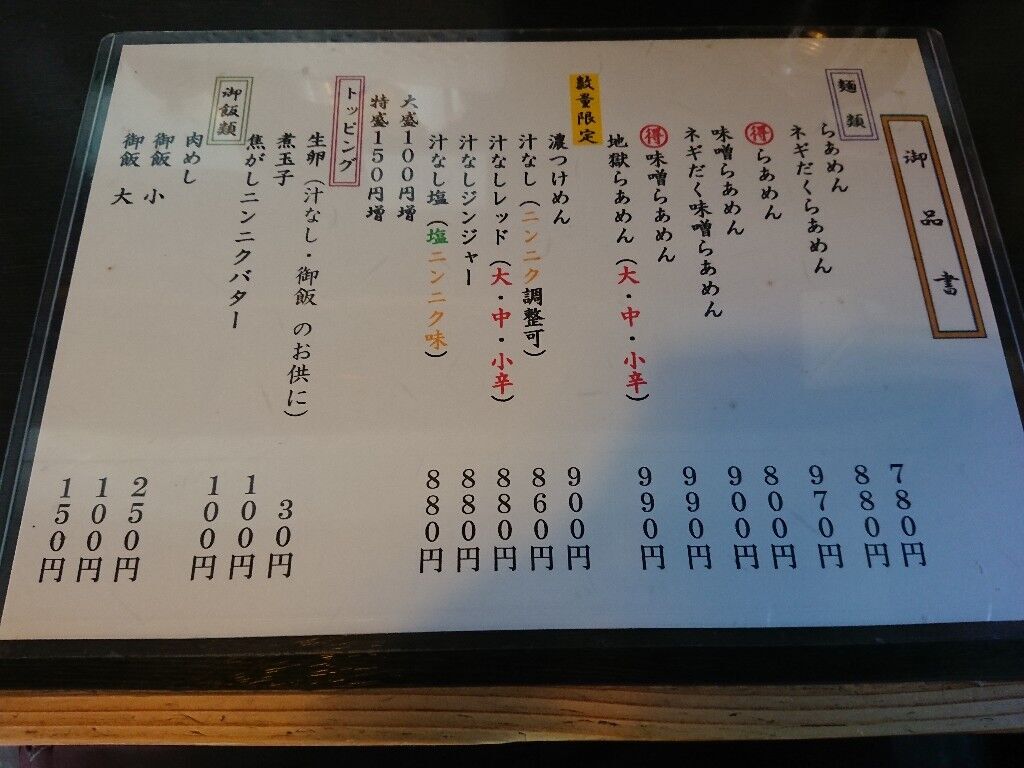 御品書
麺類
らあめん 780円
ネギだくらあめん 880円
得 らあめん 970円
味噌らあめん 800円
ネギだく味噌らあめん 900円
得 味噌らあめん 990円
地獄らあめん（大・中・小辛） 990円
数量限定
濃つけめん 900円
汁なし（ニンニク調整可） 860円
汁なしレッド（大・中・小辛） 880円
汁なしジンジャー 880円
汁なし塩（塩ニンニク味） 880円
大盛100円増
特盛150円増
トッピング
生卵（汁なし・御飯 のお供に） 30円
煮玉子 100円
焦がしニンニクバター 100円
御飯類
肉めし 250円
御飯 小 100円
御飯 大 150円